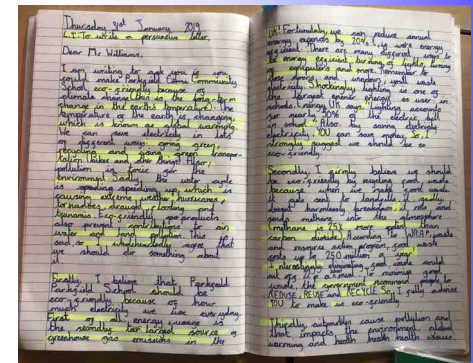 Thursday 31st January 2019
L.I: To write a persuasive letter.
Dear Mr Williams,
I am writing to ask you to
make Parkfield Community
School eco-friendly because of
climate change (this is the long-term
change in the earth's temperature). The
temperature of the earth is changing,
which is known as global warming.
We can save electricity lots
of different ways: going green,
recycling and using green transpor-
tation (bikes and other things). Also,
pollution is for the
environment. Sadly, the water cycle
is speeding up, which is
causing extreme weather: hurricanes,
tornadoes, through to flooding and
tsunamis. Eco-friendly products
also prevent contributions to air,
water and land pollution. This is
sad, so I wholeheartedly agree that
we should do something about
it.
Firstly, I believe that Parkfield
Parkfield School should be
eco-friendly because of how
much electricity we use everyday.
First of all, energy usage is
the secondly largest source of
greenhouse gas emissions in the
UK! Fortunately, we can reduce annual
energy expends by 20% (is more energy
efficient. There are many different
be energy efficient: turning of lights, turning
of computers and more. Remember to
doors and windows, you'll waste
electricity. Shockingly, lighting is one of
the largest energies used in
schools. Energy UK says, "Lighting accounts
for nearly 50% of the electric bill
in school". Also, by saving energy
electricity, YOU can save money. So, I
strongly suggest we should be so
eco-friendly.
Secondly, I firmly believe we should
be eco-friendly by recycling food waste
because when we make food waste
it gets sent to landfills, it
doesn't harmlessly break down, it and
sends methane into the atmosphere
(methane is 25x more potent than
carbon dioxide). According to W.R.A.P. waste
resource action program, food waste
costs up to 250 million a year!
Interestingly, eliminating food waste could
out of 25% a small. To minimise food
waste, the government recommend people to
REDUSE, REUSE and RECYCLE. So, I fully advise
YOU to make us eco-friendly.
Thirdly, automobiles cause pollution and
that impacts the environment, global
warming and health health issues.